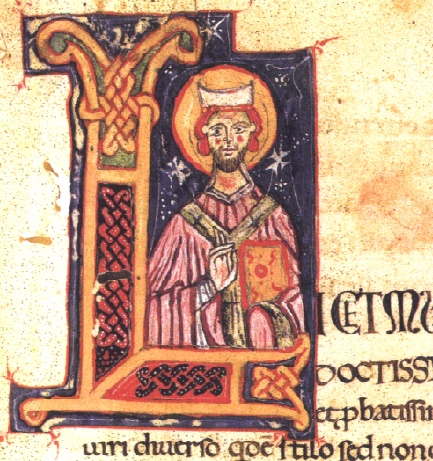 LICET MU
DOCTISSI
et ꝓbatissi
uiri diuerso qdē stilo sed non